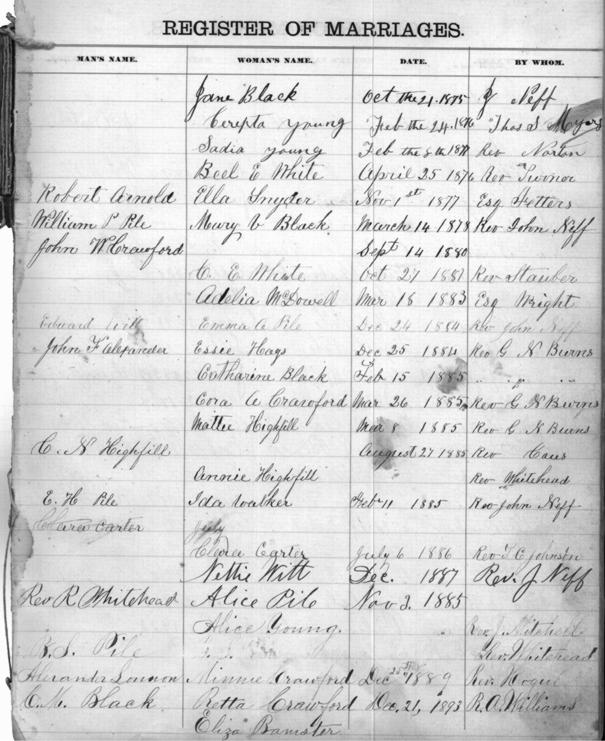 REGISTER OF MARRIAGES.
MAN'S NAME. WOMAN'S NAME. DATE. BY WHOM.
Jane Black Oct the 21. 1875 J Neff
Cerepta Young Feb the 24. 1876 Thos S Myers
Sadia Young Feb the 8th Rev Norton
Beel E White April 25 1876 Rev
Robert Arnold Ella Snyder Nov 1st 1877 Esq Fetters
William P Pile Mary V Black March 14 1878 Rev John Neff
John W Crawford Sept 14 1880
C E White Oct 27 1881 Rev Stauber
Adelia McDowell Mar 18 1883 Esq Wright
Edward Witt Emma A Pile Dec 24 1884 Rev John Neff
John F Alexander Essie Hays Dec 25 1884 Rev G N Burns
Catharine Black Feb 15 1885 " " "
Cora A Crawford Mar 26 1885 Rev G N Burns
Mattie Highfill Mar 8 1885 Rev G N Burns
C. N Highfill August 27 1885 Rev
Annie Highfill Rev Whitehead
E. H Pile Ida Walker Feb 11 1885 Rev John Neff
Clara Carter July
Clara Carter July 6 1886 Rev T C Johnson
Nettie Witt Dec. 1887 Rev. J Neff
Rev R Whitehead Alice Pile Nov 3. 1885
Alice Young. Rev. J. Mitchell
B. S. Pile Rev. Whitehead
Alexander Lonnon Minnie Crawford Dec 25th 1889 Rev. Hogue
C. M. Black Retta Crawford Dec. 21, 1893 R. A. Williams
Eliza Bamster